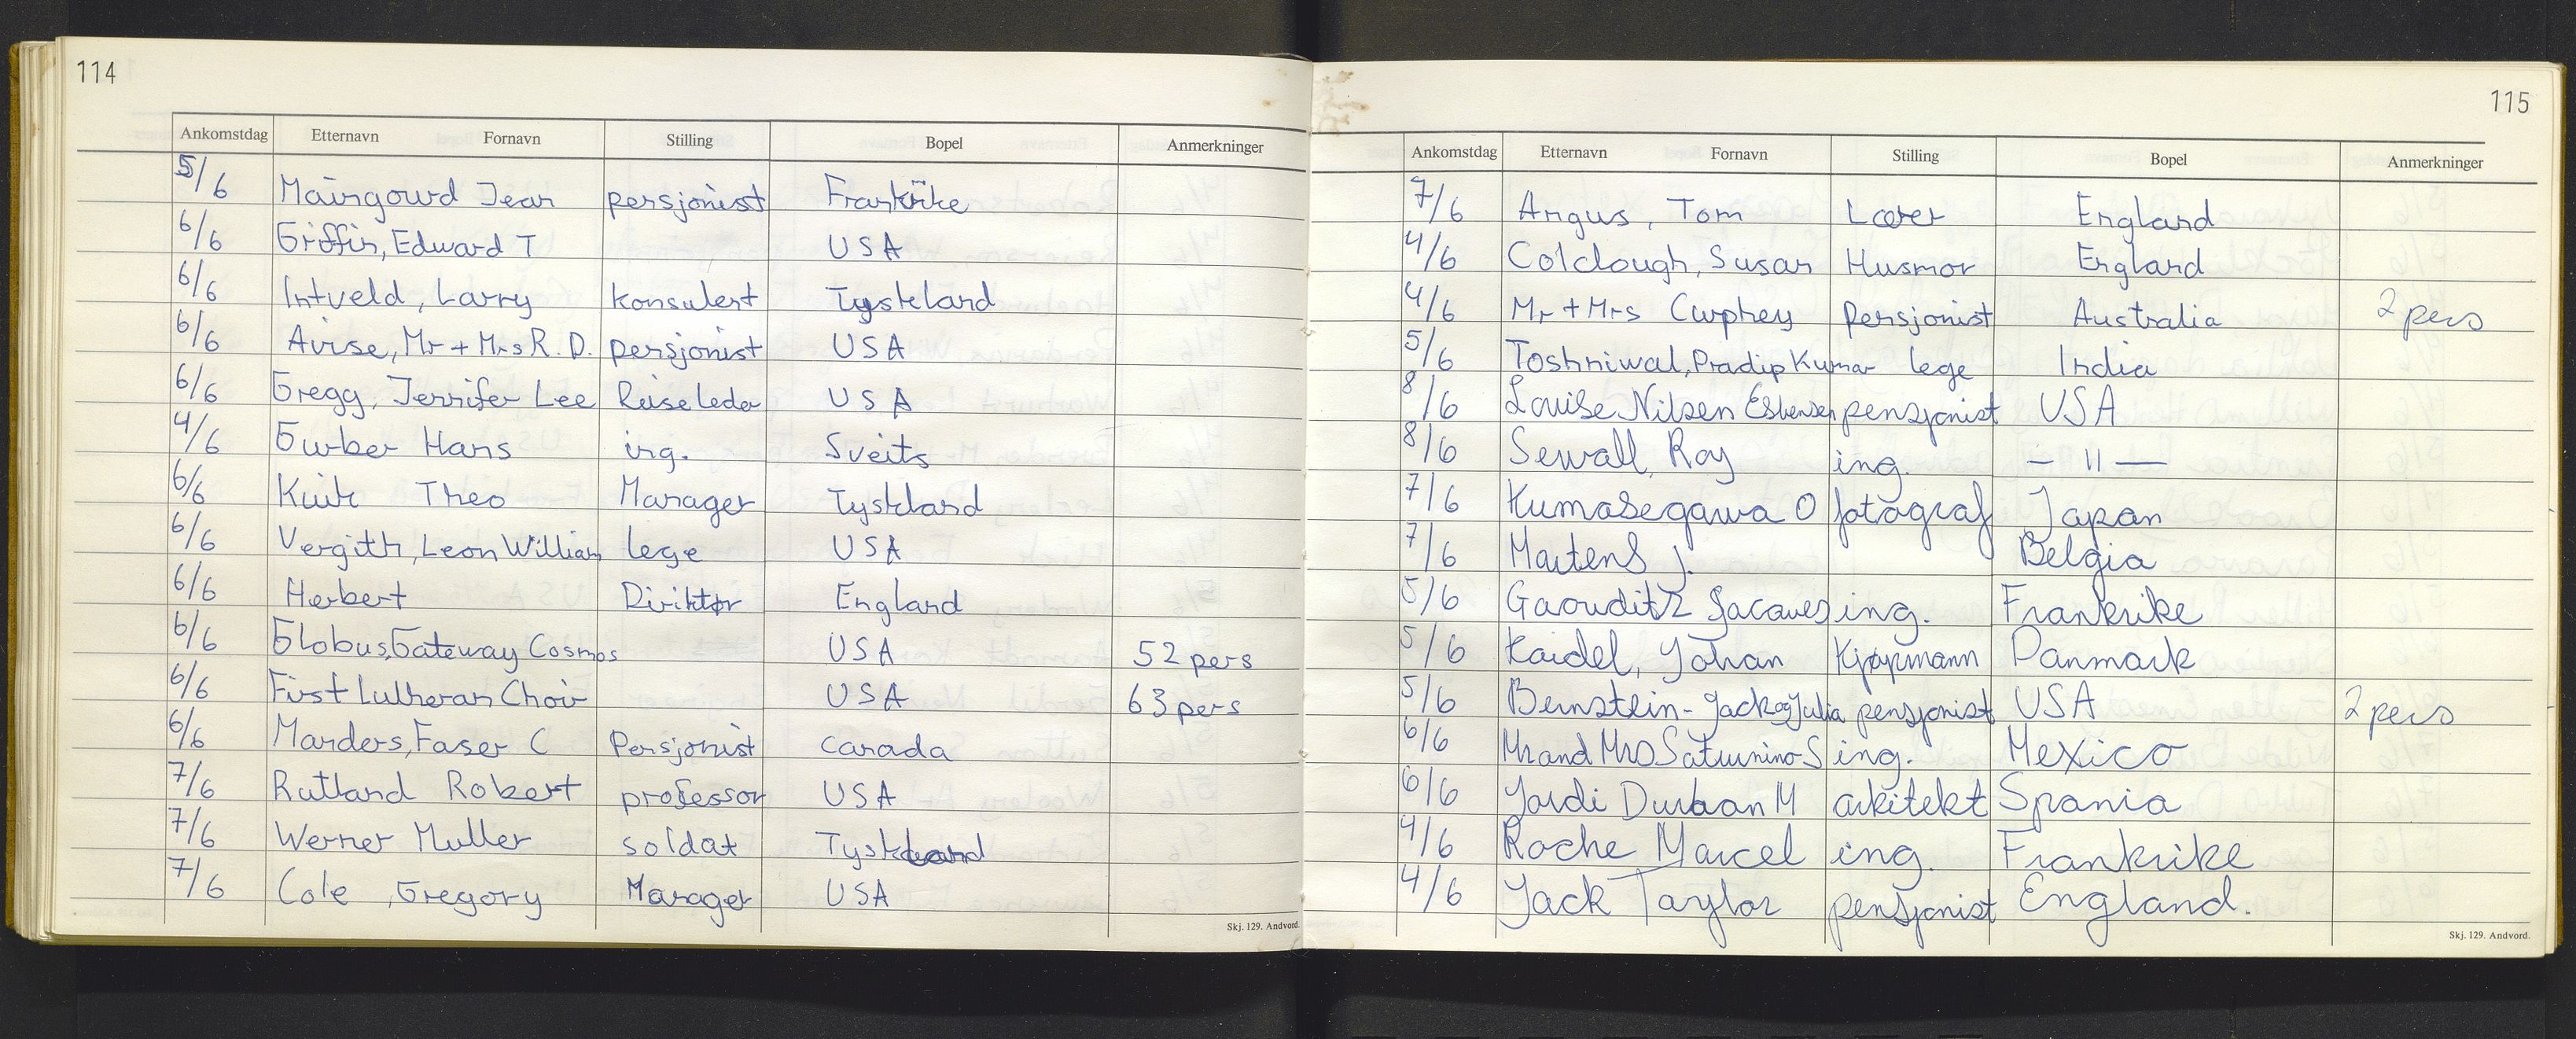 114
Ankomstdag Etternavn Fornavn Stilling Bopel Anmerkninger
5/6 Maingourd Jean pensjonist Frankrike
6/6 Griffin, Edward T USA
6/6 Intveld, Larry Konsulent Tyskland
6/6 Avise, Mr + Mrs R. D. pensjonist USA
6/6 Gregg, Jennifer Lee Reiseleder USA
4/6 Gurber Hans ing. Sveits
6/6 Kuik Theo Manager Tyskland
6/6 Vergith, Leon William lege USA
6/6 Herbert Diriktør England
6/6 Globus, Gateway Cosmos USA 52 pers
6/6 First Lutheran Choir USA 63 pers
6/6 Manders, Faser C Pensjonist Canada
7/6 Rutland Robert professor USA
7/6 Werner Muller soldat Tyskland
7/6 Cole, Gregory Manager USA
Skj. 129. Andvord.
115
Ankomstdag Etternavn Fornavn Stilling Bopel Anmerkninger
7/6 Angus, Tom Lærer England
4/6 Colclough, Susan Husmor England
4/6 Mr + Mrs Curphey Pensjonist Australia 2 pers
5/6 Toshniwal, Pradip Kumar lege India
8/6 Louise Nilsen Esbensen pensjonist USA
8/6 Sewall, Roy ing. — 11 —
7/6 Kumasegawa O fotograf Japan
7/6 Martens J. Belgia
5/6 Gaouditz Jacques ing. Frankrike
5/6 Kaidel, Johan Kjøpmann Danmark
5/6 Bernstein - Jack og Julia pensjonist USA 2 pers
6/6 Mr and Mrs Saturnino S ing. Mexico
6/6 Jordi Durban M arkitekt Spania
4/6 Roche Marcel ing. Frankrike
4/6 Jack Taylor pensjonist England.
Skj. 129. Andvord.